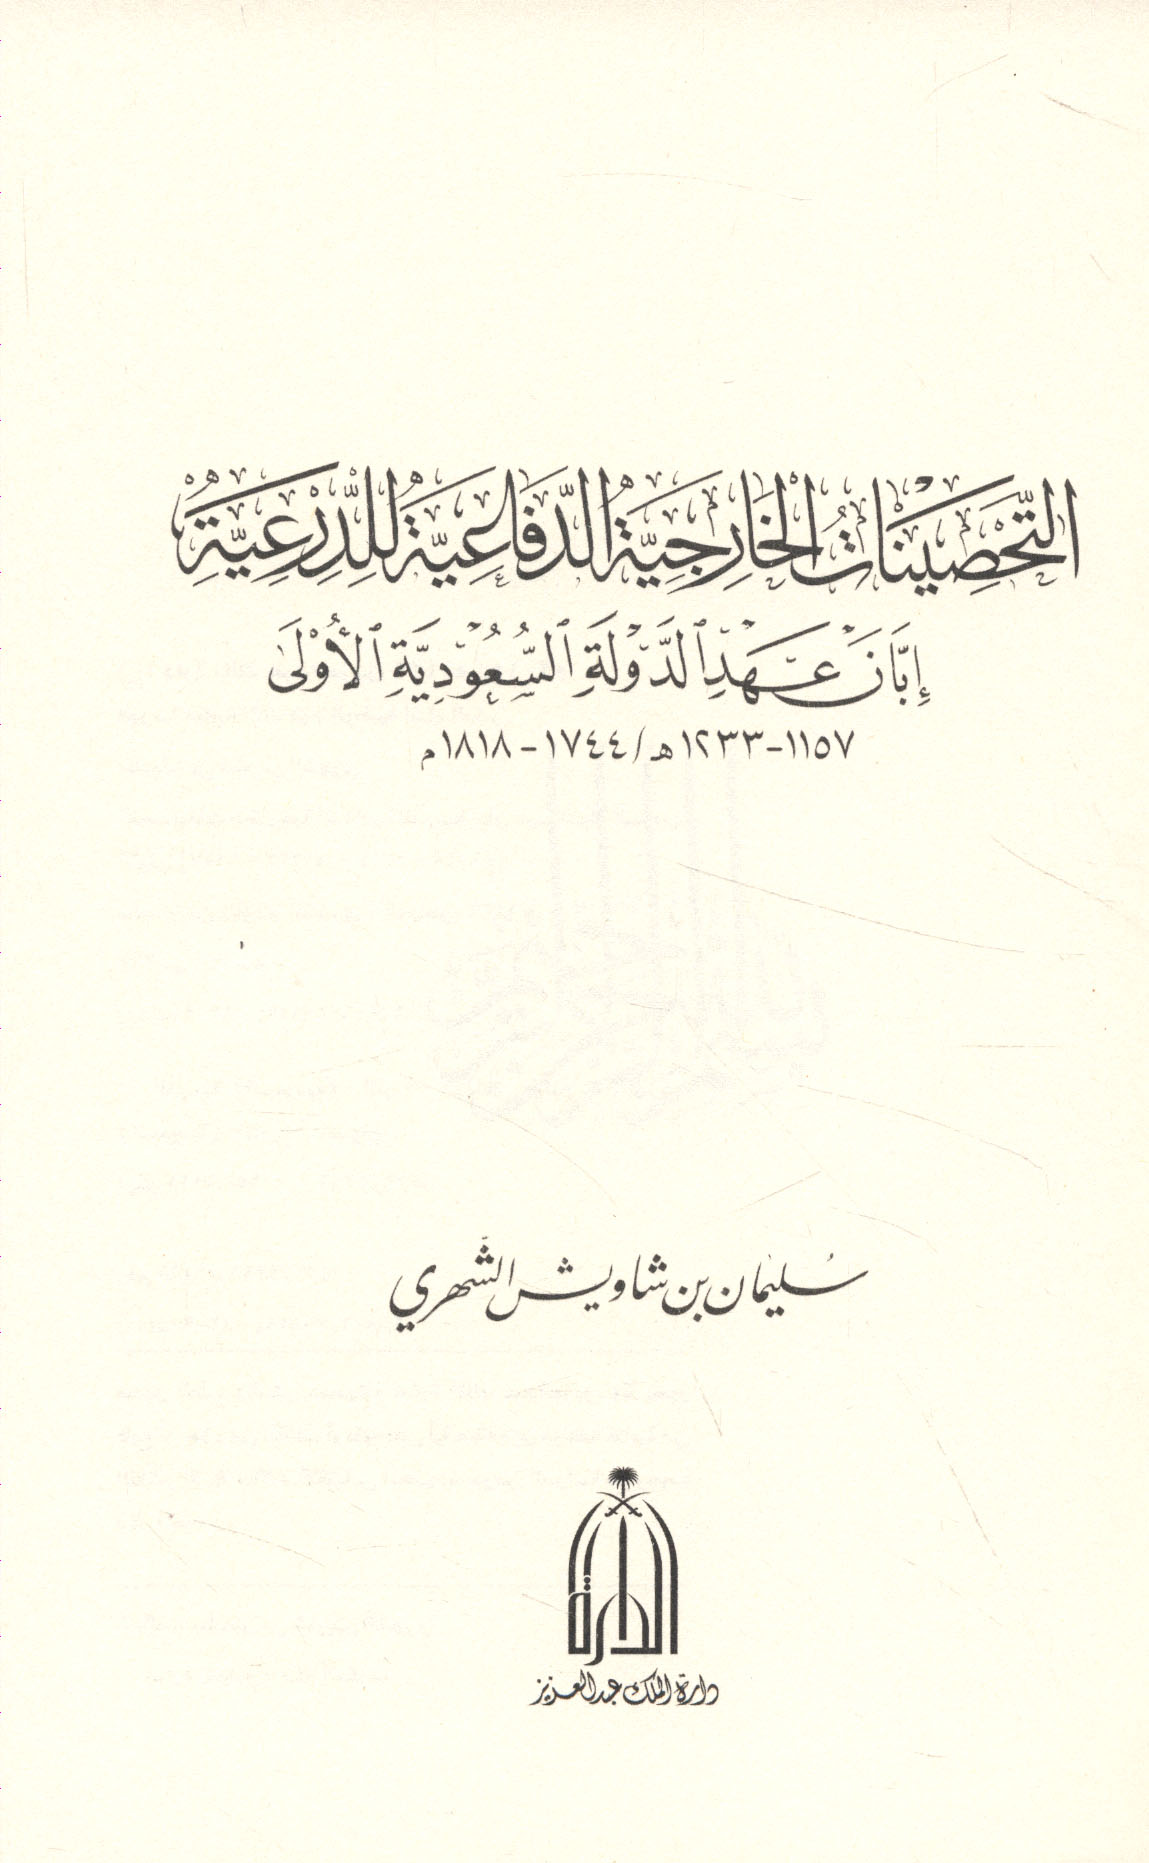 التَّحْصِينَاتُ الْخَارِجِيَّةُ الدِّفَاعِيَّةُ لِلدِّرْعِيَّةِ
إِبَّانَ عَهْدِ ٱلدَّوْلَةِ ٱلسُّعُوْدِيَّةِ ٱلأُوْلَى
١١٥٧-١٢٣٣هـ/١٧٤٤-١٨١٨م
سُليمان بن شاويش الشَّهري
الدارة
دارة الملك عبدالعزيز